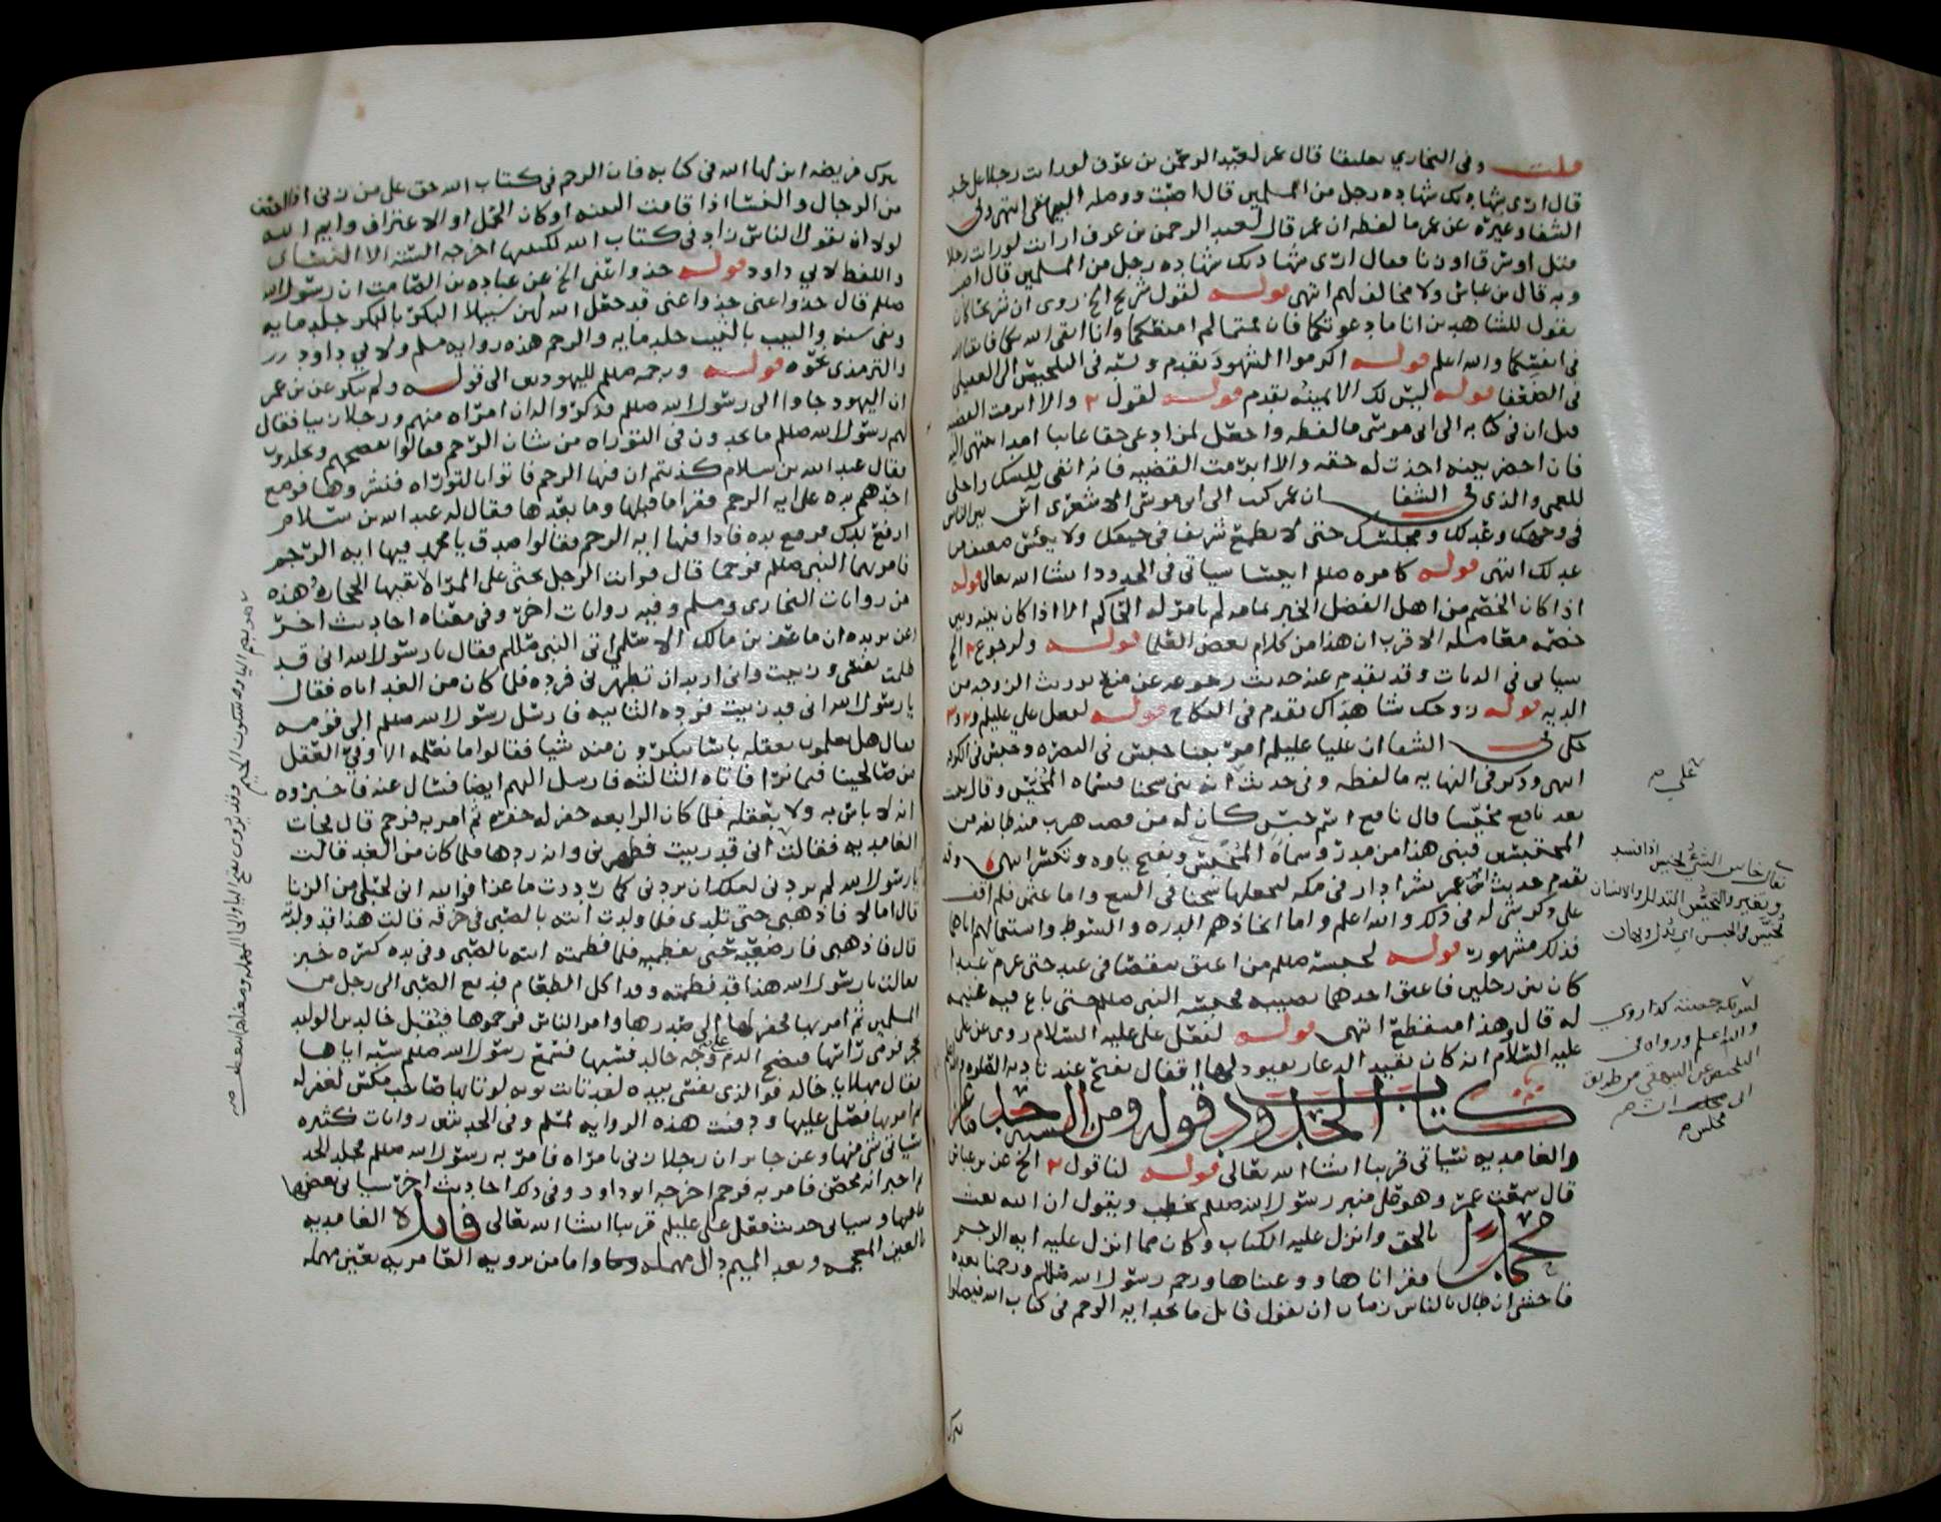 قلت وفي البخاري تعليقا قال عمر لعبد الرحمن بن عوف لو رايت رجلا على حد
قال ارى شهادتك شهاده رجل من المسلمين قال اصبت ووصله البيهقي انتهى وفي
الشفا وغيره عن عمر ما لفظه ان عمر قال لعبد الرحمن بن عوف ارايت لو رايت رجلا
قتل او سرق او زنا فقال ارى شهادتك شهاده رجل من المسلمين قال اصبت
وبه قال بن عباس ولا مخالف لهم انتهى قوله لقول شريح الخ روى ان شريحا كان
يقول للشاهدين انا ما دعوتكما فان قمتما لم امنعكما وانا اتقي الله بكما فاتقيا الله
في انفسكما والله اعلم قوله اكرموا الشهود تقدم ونسبه في التلخيص الى العقيلي
في الضعفا قوله ليس لك الا يمينه تقدم قوله لقول ٢ والا ابرمت القضيه
قيل ان في كتابه الى ابي موسى ما لفظه واجعل لمن ادعى حقا غائبا امدا ينتهي اليه
فان احضر بينه اخذت له حقه والا ابرمت القضيه فانه انفى للشك واجلى
للعمى والذي في الشفا ان عمر كتب الى ابي موسى الاشعري آس بين الناس
في وجهك وعدلك ومجلسك حتى لا يطمع شريف في حيفك ولا ييئس ضعيف من
عدلك انتهى قوله كامره صللم انيسا سياتي في الحدود انشا الله تعالى قوله
اذا كان الخصم من اهل الفضل الخبر بتمامه لم يامر له الحاكم الا اذا كان بينه وبين
خصمه معامله الاقرب ان هذا من كلام بعض العلما قوله ولرجوع ٢ الخ
سياتي في الديات وقد تقدم عنه حديث رجوعه عن منع توريث الزوجه من
الديه قوله زوجك شاهداك تقدم في النكاح قوله لفعل علي عليلم و٢ و٣
حكى في الشفا ان عليا عليلم امر ببنا حبس في البصره وحبس في الكوفه
انتهى وذكر في النهايه ما لفظه وفي حديث انه بنى سجنا فسماه المخيس وقال بنيت
بعد نافع مخيسا قال نافع اسم حبس كان له من قصب هرب منه طايفه من
المحتبسين فبنى هذا من مدر وسماه المخيس وبفتح ياوه وتكسر انتهى وقد
تقدم حديث ان عمر شرا دارا في مكه ليجعلها سجنا في البيع واما عثمن فلم اقف
على ذكر شي له في ذلك والله اعلم واما اتخاذهم الدره والسوط واستعمالهم اياها
فذلك مشهور قوله لحبسه صللم من اعتق شقصا في عبد حتى غرم عبدا
كان بين رجلين فاعتق احدهما نصيبه فحبسه النبي صللم حتى باع فيه غنيمه
له قال وهذا منقطع انتهى قوله لفعل علي عليه السلام روى عن علي
عليه السلام انه كان يقيد الدعار بقيود لها اقفال يفتح عند اوقات الصلوه
كتاب الحدود قوله ومن السنه خبر ماعز
والغامديه سياتي قريبا انشا الله تعالى قوله لنا قول ٢ الخ عن بن عباس
قال سمعت عمر وهو على منبر رسول الله صللم يخطب ويقول ان الله بعث
محمدا بالحق وانزل عليه الكتاب وكان مما انزل عليه ايه الرجم
فقراناها ووعيناها ورجم رسول الله صللم ورجمنا بعده
فاخشى ان طال بالناس زمان ان يقول قائل ما نجد ايه الرجم في كتاب الله فيضلوا
بترك
على ص
يقال خاس الشي يخيس اذا فسد
وتغير والتخييس التذليل والانسان
يخيس في الحبس اي يذل ويهان
والله اعلم ورواه في
التلخيص عن البيهقي من طريق
ابي مجلز ص
بترك فريضه انزلها الله في كتابه فان الرجم في كتاب الله حق على من زنى اذا احصن
من الرجال والنسا اذا قامت البينه او كان الحمل او الاعتراف وايم الله
لولا ان يقول الناس زاد في كتاب الله لكتبتها اخرجه السته الا النسائي
واللفظ لابي داود قوله خذوا عني الخ عن عباده بن الصامت ان رسول الله
صللم قال خذوا عني خذوا عني قد جعل الله لهن سبيلا البكر بالبكر جلد مايه
ونفي سنه والثيب بالثيب جلد مايه والرجم هذه روايه مسلم ولابي داود
والترمذي نحوه قوله ورجمه صللم لليهوديين الى قوله ولم ينكر عن بن عمر
ان اليهود جاوا الى رسول الله صللم فذكروا له ان امراه منهم ورجلا زنيا فقال
لهم رسول الله صللم ما تجدون في التوراه من شان الرجم فقالوا نفضحهم ويجلدون
فقال عبد الله بن سلام كذبتم ان فيها الرجم فاتوا بالتوراه فنشروها فوضع
احدهم يده على ايه الرجم فقرا ما قبلها وما بعدها فقال له عبد الله بن سلام
ارفع يدك فرفع يده فاذا فيها ايه الرجم فقالوا صدق يا محمد فيها ايه الرجم
فامر بهما النبي صللم فرجما قال فرايت الرجل يحنى على المراه يقيها الحجاره هذه
من روايات البخاري ومسلم وفيه روايات اخر وفي معناه احاديث اخر
عن بريده ان ماعز بن مالك الاسلمي اتى النبي صللم فقال يا رسول الله اني قد
ظلمت نفسي وزنيت واني اريد ان تطهرني فرده فلما كان من الغد اتاه فقال
يا رسول الله اني قد زنيت فرده الثانيه فارسل رسول الله صللم الى قومه
فقال هل تعلمون بعقله باسا تنكرون منه شيا فقالوا ما نعلمه الا وفي العقل
من صالحينا فيما نرا فاتاه الثالثه فارسل اليهم ايضا فسال عنه فاخبروه
انه لا باس به ولا بعقله فلما كان الرابعه حفر له حفره ثم امر به فرجم قال فجات
الغامديه فقالت اني قد زنيت فطهرني وانه ردها فلما كان من الغد قالت
يا رسول الله لم تردني لعلك ان تردني كما رددت ماعزا فوالله اني لحبلى من الزنا
قال اما لا فاذهبي حتى تلدي فلما ولدت اتته بالصبي في خرقه قالت هذا قد ولدته
قال فاذهبي فارضعيه حتى تفطميه فلما فطمته اتته بالصبي وفي يده كسره خبز
فقالت يا رسول الله هذا قد فطمته وقد اكل الطعام فدفع الصبي الى رجل من
المسلمين ثم امر بها فحفر لها الى صدرها وامر الناس فرجموها فيقبل خالد بن الوليد
بحجر فرمى راسها فنضح الدم على وجه خالد فسبها فسمع رسول الله صللم سبه اياها
فقال مهلا يا خالد فوالذي نفسي بيده لقد تابت توبه لو تابها صاحب مكس لغفر له
ثم امر بها فصلى عليها ودفنت هذه الروايه لمسلم وفي الحديثين روايات كثيره
سياتي شي منها وعن جابر ان رجلا زنى بامراه فامر به رسول الله صللم فجلد الحد
ثم اخبر انه محصن فامر به فرجم اخرجه ابو داود وفي ذلك احاديث اخر سياتي بعضها
وسياتي حديث فعل علي عليلم قريبا انشا الله تعالى فائده الغامديه
بالغين المعجمه وبعد الميم دال مهمله واما من يرويه العامريه بعين مهمله